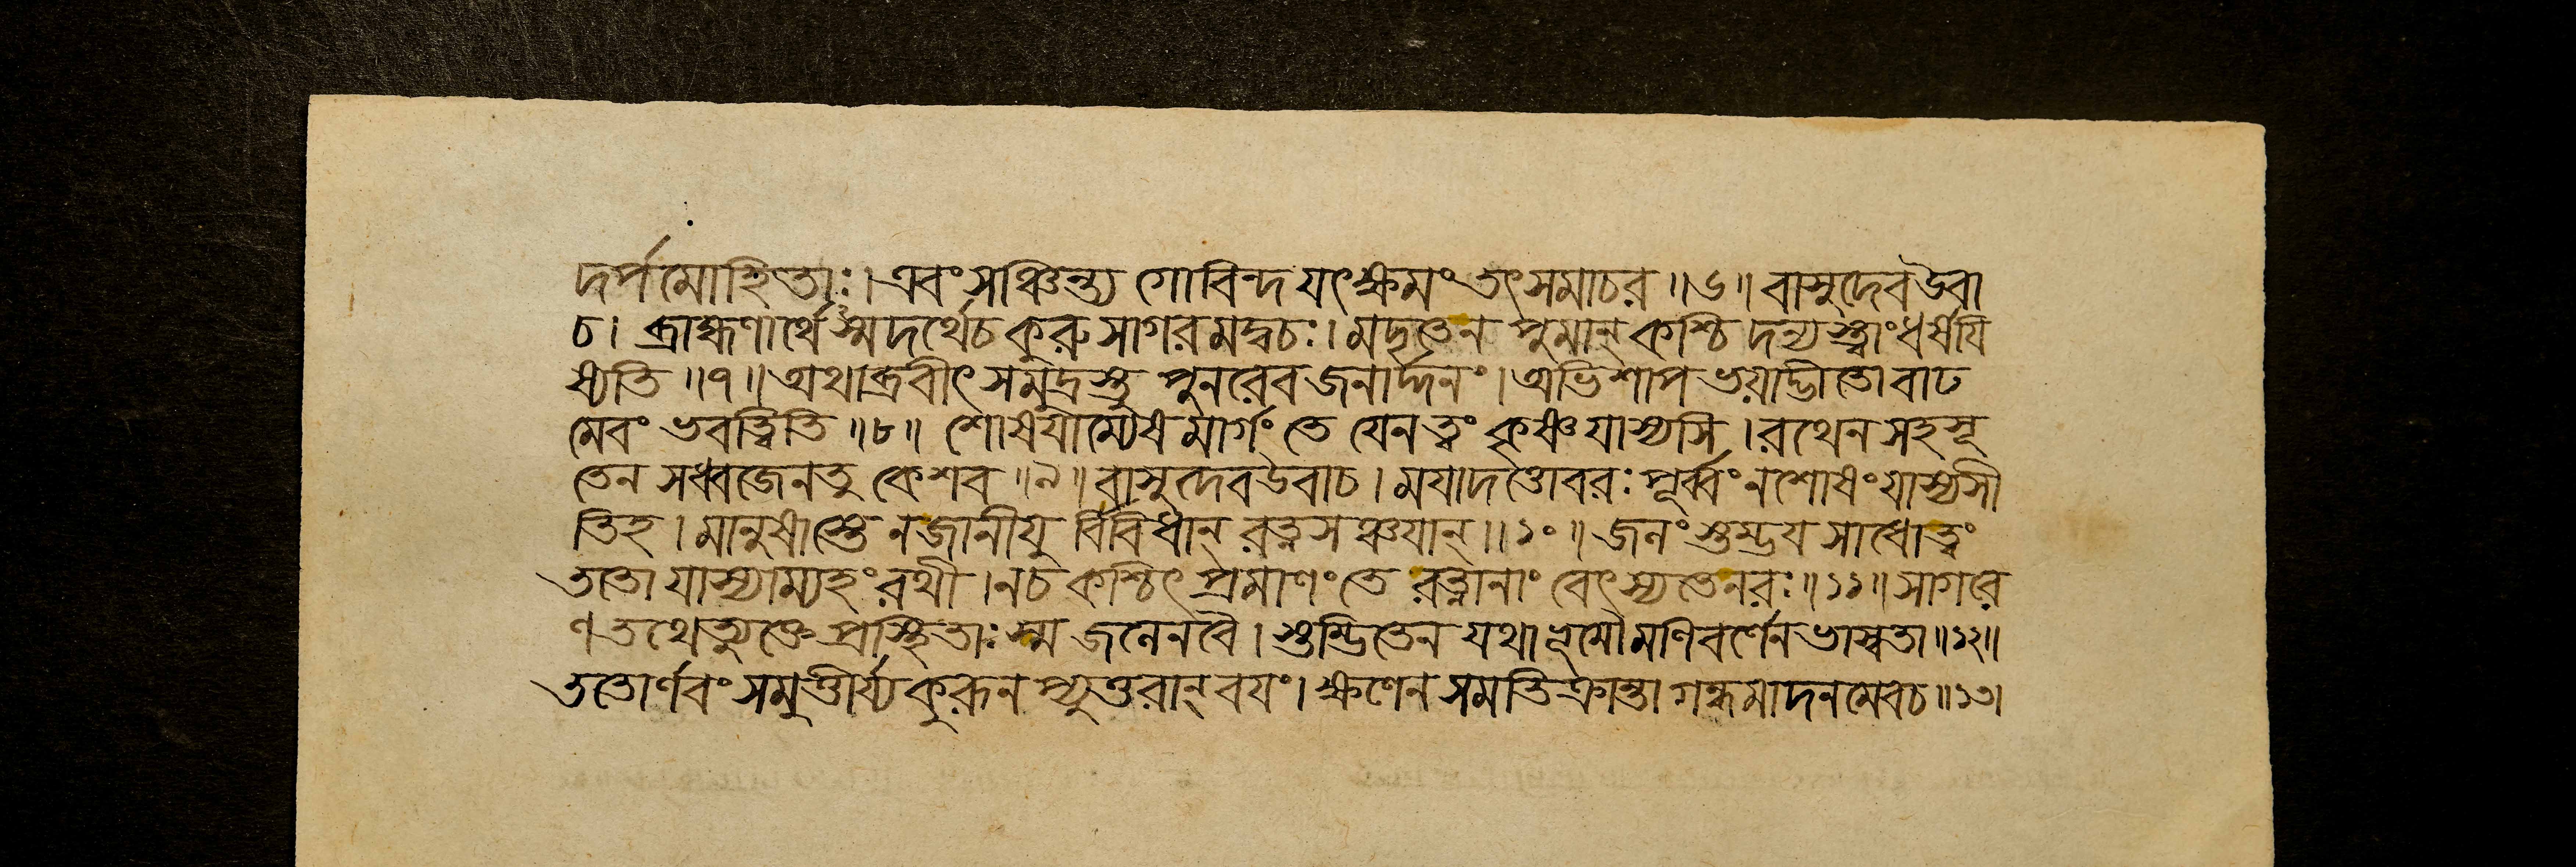 দর্পমোহিতাঃ। এবং সঞ্চিন্ত্য গোবিন্দ যৎক্ষমং তৎসমাচর॥৬॥ বাসুদেবউবা
চ। ব্রাহ্মণার্থে স্মদর্থেচ কুরু সাগরমদ্বচঃ। মদৃতেন পুমান্ কশ্চি দন্যস্ত্বাং ধর্ষয়ি
ষ্যতি॥৭॥ অথাব্রবীৎ সমুদ্রস্তু পুনরেব জনার্দ্দনং। অভিশাপ ভয়াদ্ভীতো বাঢ
মেবং ভবত্বিতি॥৮॥ শোষযাম্যেষ মার্গং তে যেন ত্বং কৃষ্ণ যাস্যসি। রথেন সহ সূ
তেন সধ্বজেনতু কেশব॥৯॥ বাসুদেবউবাচ। মযাদত্তোবরঃ পূর্ব্বং নশোষং যাস্যসী
তিহ। মানুষাস্তে নজানীযু র্বিবিধান্ রত্নসঞ্চযান্॥১০॥ জনং স্তম্ভয সাধোত্বং
ততো যাস্যাম্যহং রথী। নচ কশ্চিৎ প্রমাণং তে রত্নানাং বেৎস্যতেনরঃ॥১১॥ সাগরে
ণ তথেত্যুক্তে প্রস্থিতাঃ স্ম জনেনবৈ। স্তম্ভিতেন যথা ভূমৌ মণিবর্ণেন ভাস্বতা॥১২॥
ততোর্ণবং সমুত্তীর্য্য কুরূন প্যুত্তরান্ বযং। ক্ষণেন সমতিক্রান্তা গন্ধমাদনমেবচ॥১৩।